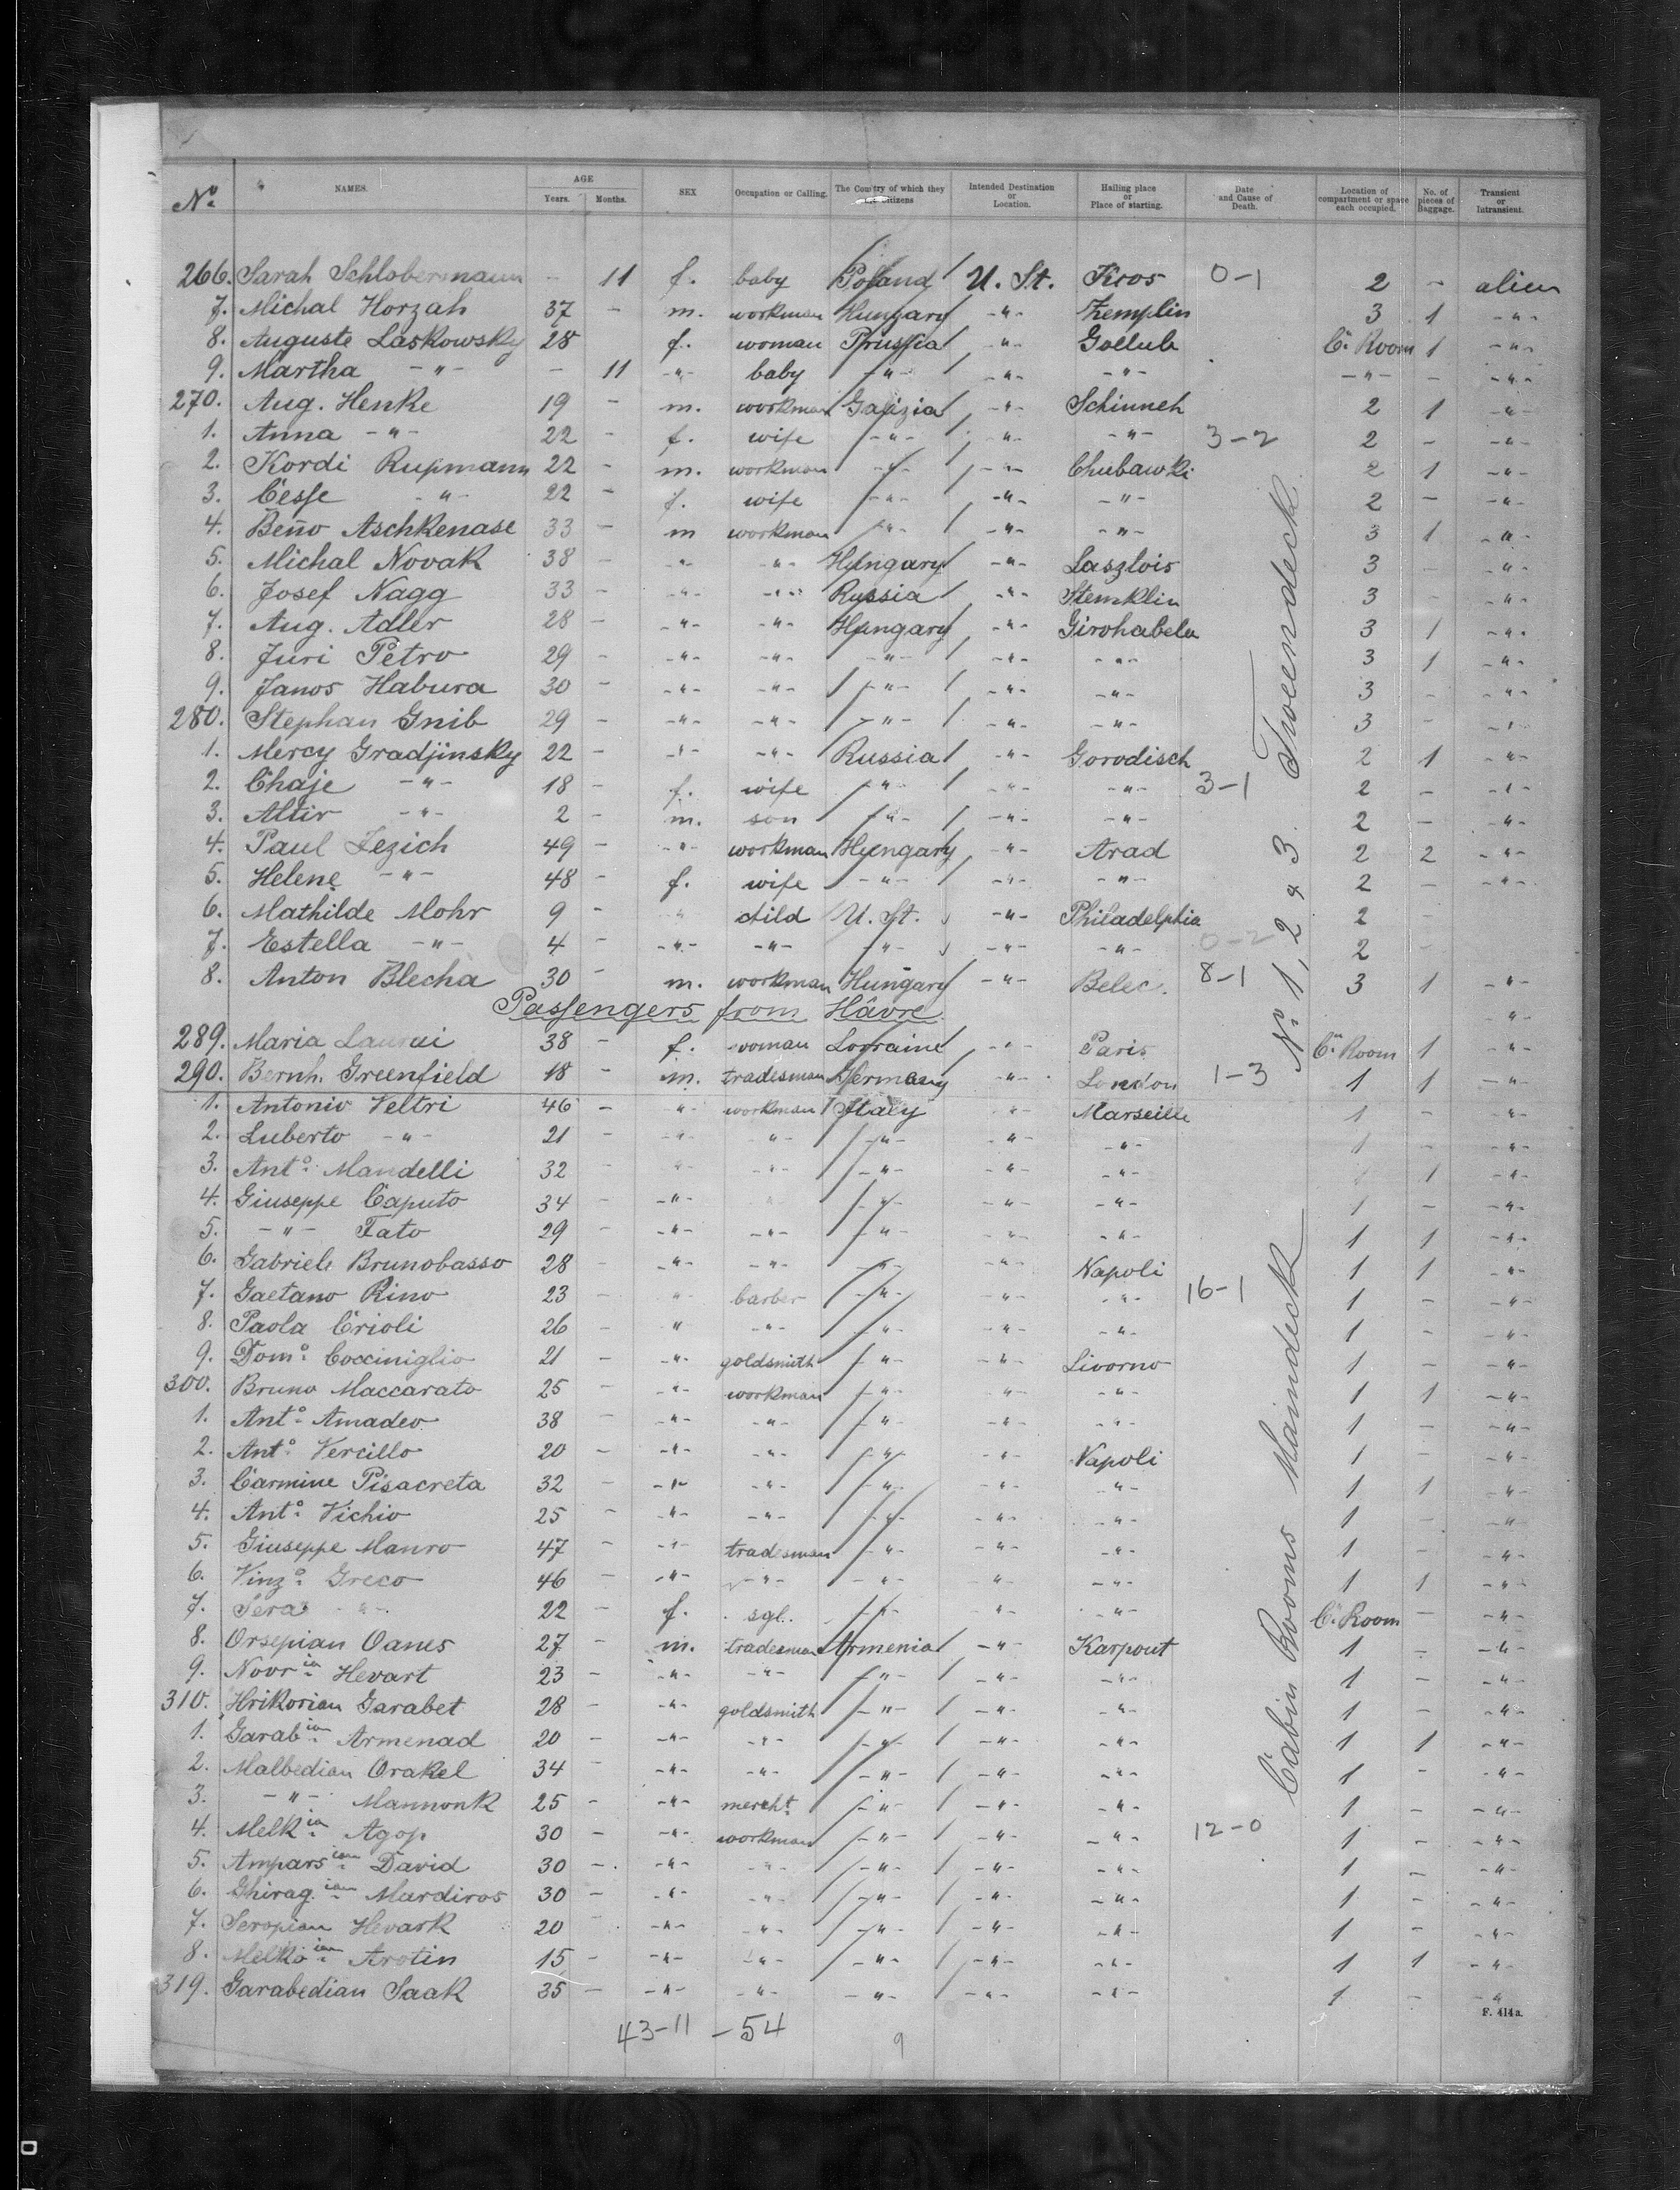 No. NAMES. AGE Years. Months. SEX Occupation or Calling. The Country of which they are Citizens Intended Destination or Location. Hailing place or Place of starting. Date and Cause of Death. Location of compartment or space each occupied. No. of pieces of Baggage. Transient or Intransient.
266. Sarah Schlobermann - 11 f. baby Poland U. St. Kros 0-1 2 - alien
7. Michal Horzah 37 - m. workman Hungary -"- Zemplin 3 1 -"-
8. Auguste Laskowsky 28 f. woman Prussia -"- Gollub C. Room 1 -"-
9. Martha -"- - 11 -"- baby -"- -"- -"- -"- - -"-
270. Aug. Henke 19 - m. workman Galizia -"- Schinneh 2 1 -"-
1. Anna -"- 22 - f. wife -"- -"- -"- 3-2 2 - -"-
2. Kordi Rupmann 22 - m. workman -"- -"- Chubawki 2 1 -"-
3. Cesse -"- 22 - f. wife -"- -"- -"- 2 - -"-
4. Beño Aschkenase 33 - m workman -"- -"- -"- 3 1 -"-
5. Michal Novak 38 - -"- -"- Hungary -"- Laszlois 3 - -"-
6. Josef Nagg 33 - -"- -"- Russia -"- Stemklin 3 - -"-
7. Aug. Adler 28 - -"- -"- Hungary -"- Girohabela 3 1 -"-
8. Juri Petro 29 - -"- -"- -"- -"- -"- 3 1 -"-
9. Janos Habura 30 - -"- -"- -"- -"- -"- 3 - -"-
280. Stephan Gnib 29 - -"- -"- -"- -"- -"- 3 - -"-
1. Mercy Gradjinsky 22 - -"- -"- Russia -"- Gorodisch 2 1 -"-
2. Chaje -"- 18 - f. wife -"- -"- -"- 3-1 2 - -"-
3. Altir -"- 2 - m. son -"- -"- -"- 2 - -"-
4. Paul Jezich 49 - -"- workman Hungary -"- Arad 2 2 -"-
5. Helene -"- 48 - f. wife -"- -"- -"- 2 - -"-
6. Mathilde Mohr 9 - -"- child U. St. -"- Philadelphia 2 -
7. Estella -"- 4 - -"- -"- -"- -"- -"- 0-2 2 -
8. Anton Blecha 30 - m. workman Hungary -"- Belec. 8-1 3 1 -"-
No. 1, 2 & 3. Tweendeck
Passengers from Hâvre. -"-
289. Maria 38 - f. woman Lorraine -"- Paris C. Room 1 -"-
290. Bernh. Greenfield 18 - m. tradesman Germany -"- London 1-3 1 1 -"-
1. Antonio Veltri 46 - -"- workman Italy -"- Marseille 1 - -"-
2. Luberto -"- 21 - -"- -"- -"- -"- -"- 1 - -"-
3. Anto. Mandelli 32 - -"- -"- -"- -"- -"- 1 1 -"-
4. Giuseppe Caputo 34 - -"- -"- -"- -"- -"- 1 - -"-
5. -"- Fato 29 - -"- -"- -"- -"- -"- 1 1 -"-
6. Gabriele Brunobasso 28 - -"- -"- -"- -"- Napoli 1 1 -"-
7. Gaetano Rino 23 - -"- barber -"- -"- -"- 16-1 1 - -"-
8. Paola Crioli 26 - " -"- -"- -"- -"- 1 - -"-
9. Domo. Cocciniglio 21 - -"- goldsmith -"- -"- Livorno 1 - -"-
300. Bruno Maccarato 25 - -"- workman -"- -"- -"- 1 1 -"-
1. Anto. Amadeo 38 - -"- -"- -"- -"- -"- 1 - -"-
2. Anto. Vercillo 20 - -"- -"- -"- -"- Napoli 1 - -"-
3. Carmine Pisacreta 32 - -"- -"- -"- -"- -"- 1 1 -"-
4. Anto. Vichio 25 - -"- -"- -"- -"- -"- 1 - -"-
5. Giuseppe Manro 47 - -"- tradesman -"- -"- -"- 1 - -"-
6. Vinzo. Greco 46 - -"- -"- -"- " -"- 1 1 -"-
7. Sera -"- 22 - f. sgl. -"- -"- -"- C. Room - -"-
8. Orsepian Oanes 27 - m. tradesman Armenia -"- Karpout 1 - -"-
9. Novrian Hevart 23 - -"- -"- -"- -"- -"- 1 - -"-
310. Hrikorian Garabet 28 - -"- goldsmith -"- -"- -"- 1 - -"-
1. Garabian Armenad 20 - -"- -"- -"- -"- -"- 1 1 -"-
2. Malbedian Orakel 34 - -"- -"- -"- -"- -"- 1 - -"-
3. -"- Mannonk 25 - -"- mercht. -"- -"- -"- 1 - -"-
4. Melkian Agop 30 - -"- workman -"- -"- -"- 12-0 1 - -"-
5. Amparsian David 30 - -"- -"- -"- -"- -"- 1 - -"-
6. Ghiragian Mardiros 30 - -"- -"- -"- -"- -"- 1 - -"-
7. Seropian Hevark 20 -"- -"- -"- -"- -"- 1 - -"-
8. Melkoian Arotin 15 - -"- -"- -"- -"- -"- 1 1 -"-
319. Garabedian Saak 35 - -"- -"- -"- -"- -"- 1 - -"-
Cabin Rooms Maindeck
F. 414a.
43-11 - 54 9